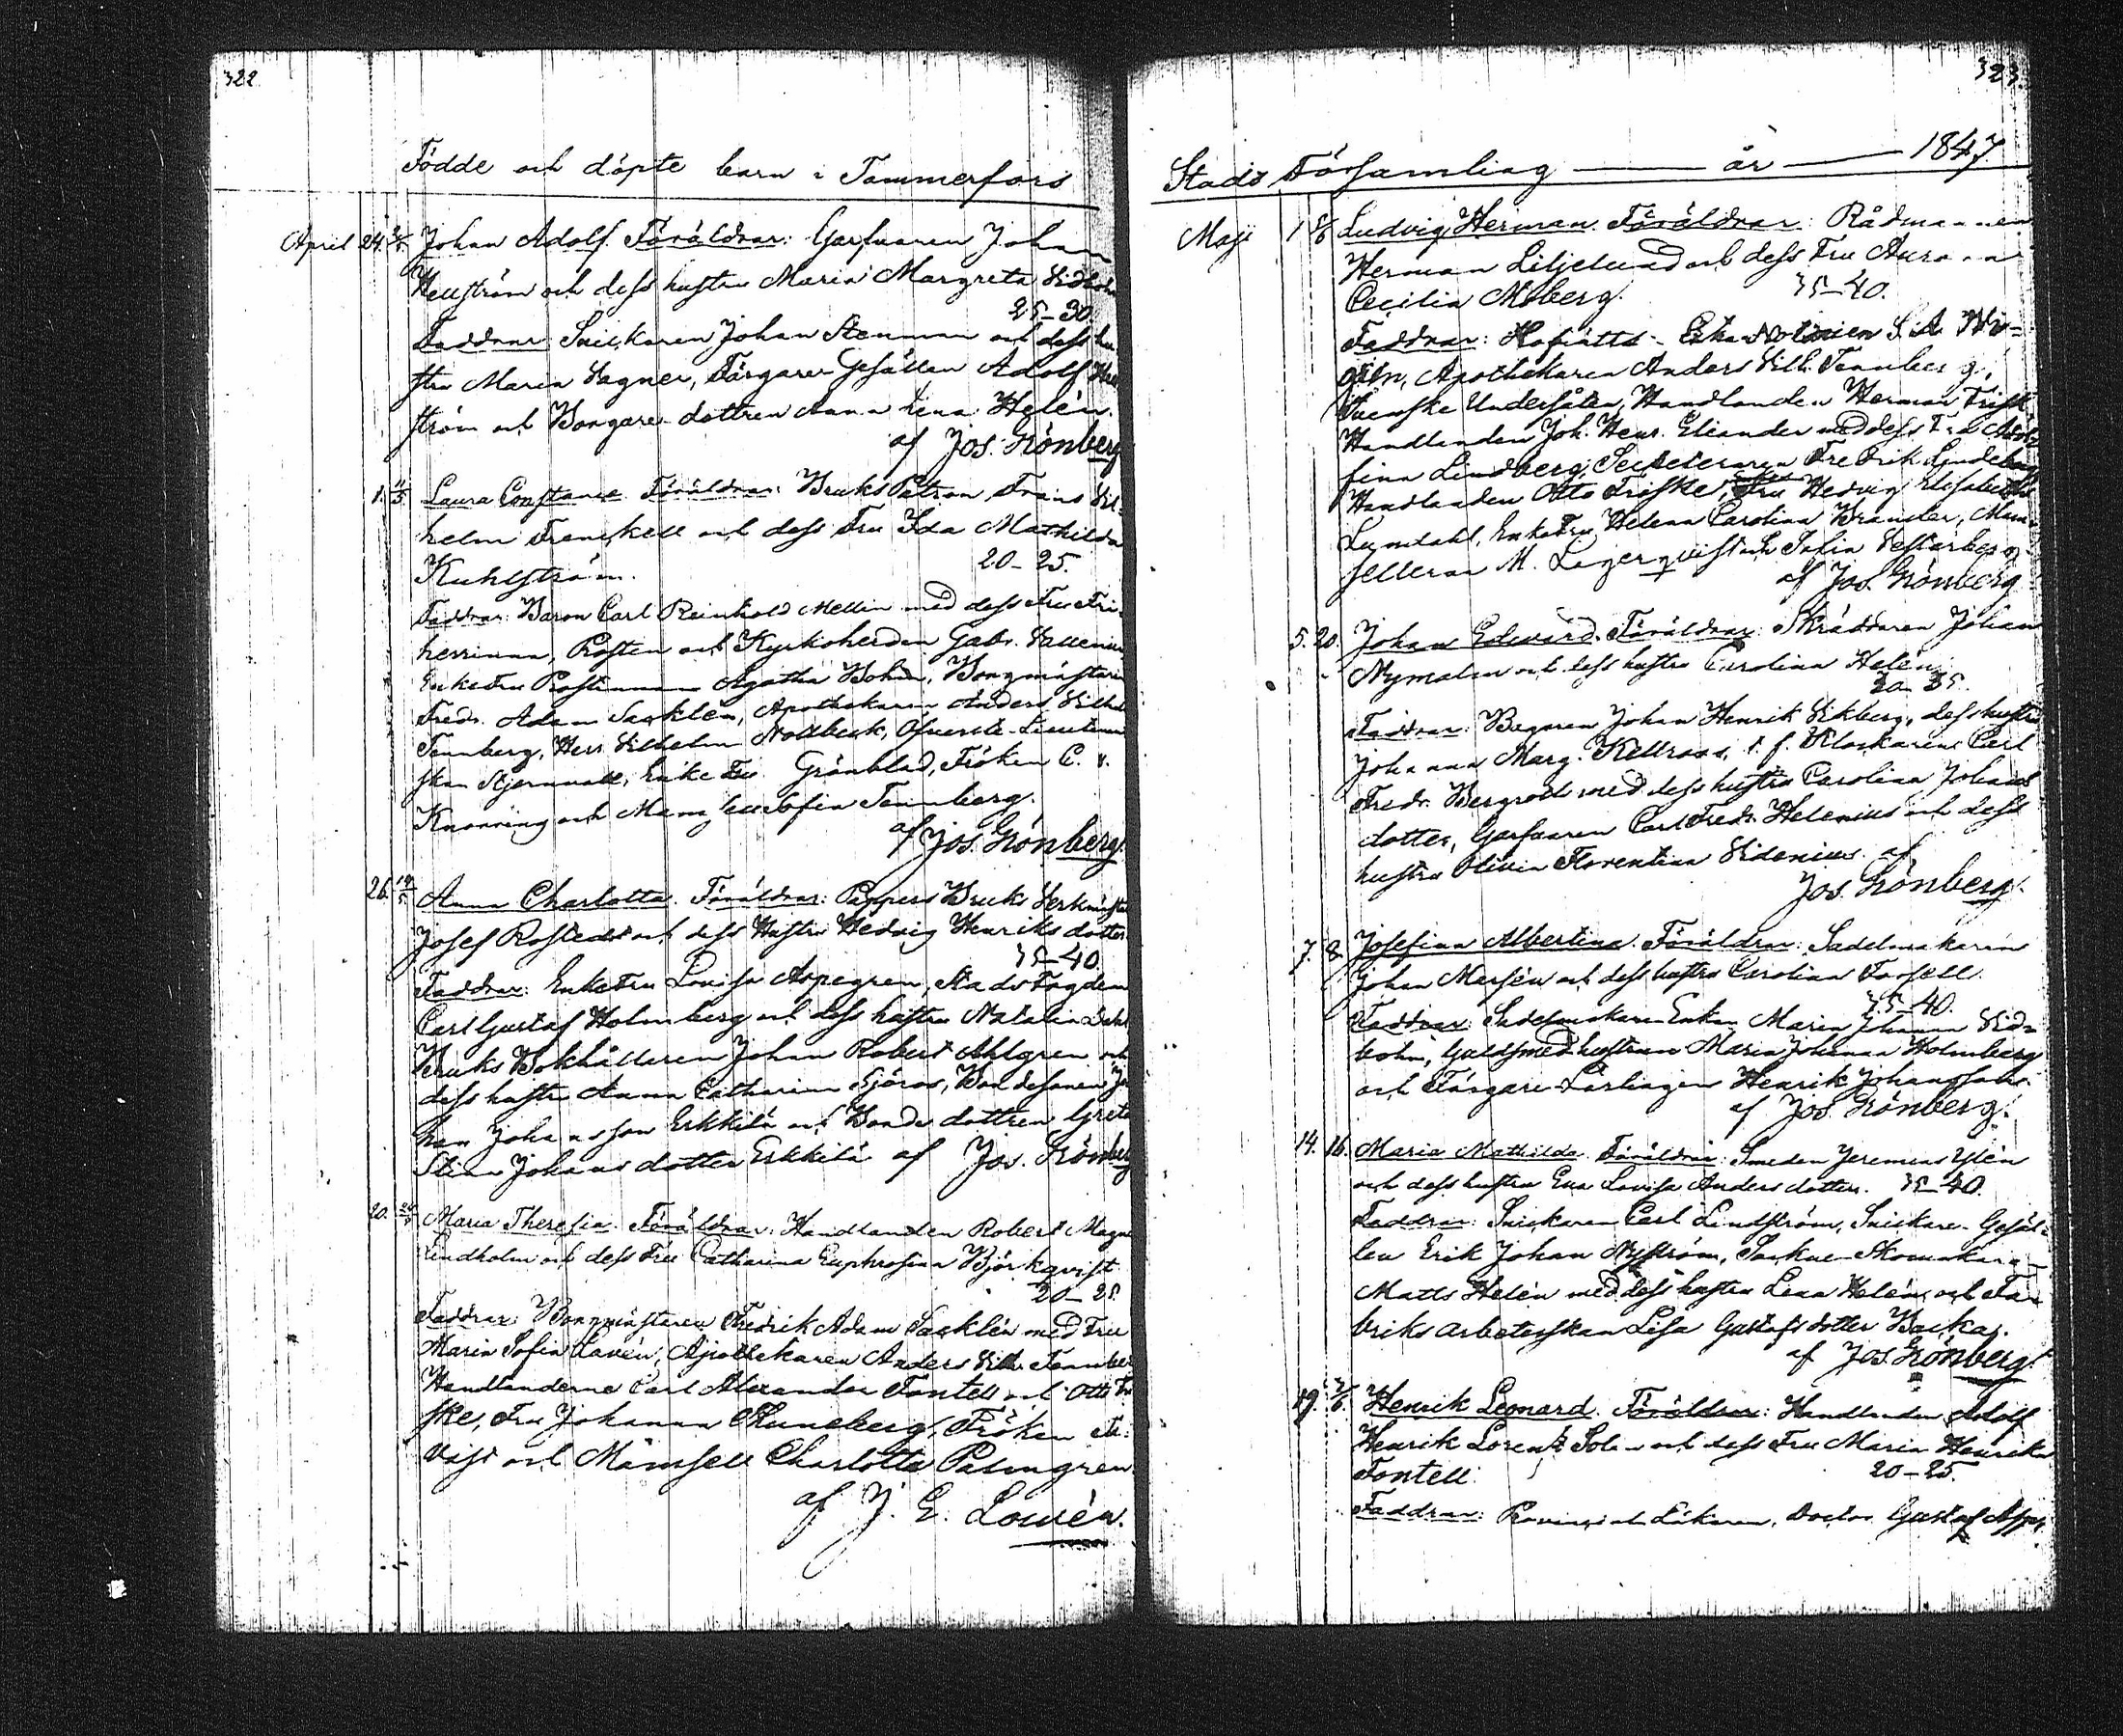 322
Födde och döpte barn i Tammerfors
April 24. Johan Adolf. Föräldrar: Garfvaren Johan
Hellström och dess hustru Maria Margreta
25-30.
Faddrar: Snickaren Johan Stenman och dess hu-
stru Maria Wagner, Färgare Gesällen Adolf
ström och Borgare dottren Anna Lena Helén.
af Jos. Grönberg
1. 11/5 Laura Constance. Föräldrar: Bruks Patron Frans Wil-
helm Frenckell och dess Fru Ida Mathilda
Kuhlström. 20-25.
Faddrar: Baron Carl Reinhold Mellin med dess Fru Fri-
herrinna, Prosten och Kyrkoherden Gabr. Wallenius
Enkefru Prostinnan Agatha Bohm, Borgmästaren
Fredr. Adam Sacklén, Apothekaren Anders Wilh.
Tennberg, Herr Wilhelm Nottbeck, Öfverste-Lieutenan-
skan Stjernvall, Enke Fru Grönblad, Fröken C. v.
Knorring och Mamsell Sofia Tennberg.
af Jos. Grönberg.
26. 14/5 Anna Charlotta. Föräldrar: Pappers Bruks Verkmästa
Josef Rostedt och dess Hustru Hedvig Henriksdotter.
35-40
Faddrar: Enkefru Lovisa Aspegren, Stads Fogden
Carl Gustaf Holmberg och dess hustru Natalia
Bruks Bokhållaren Johan Robert Ahlgren och
dess hustru Anna Catharina Sjöros, Bondesonen Jo-
han Johansson Erkkilä och Bonde dottren Greta
Stina Johansdotter Erkkilä af Jos. Grönberg
20. Maria Theresia. Föräldrar: Handlanden Robert Magn
Lindholm och dess Fru Catharina Euphrosina Björkqvist
20-25
Faddrar: Borgmästaren Fredrik Adam Sacklén med Fru
Maria Sofia Lavén, Apothekaren Anders Wilh. Tennber
Handlanderne Carl Alexander Fontell och Otto Fri
ske, Fru Johanna Runeberg, Fröken
och Mamsell Charlotta Palmgren.
af J. E. Lowén.
323.
Stads Församling — år — 1847
Maji 1. Ludvig Herman. Föräldrar: Rådmannen
Herman Liljelund och dess Fru Aurora
Cecilia Moberg. 35-40.
Faddrar: Hofrätts
Apothekaren Anders Wilh. Tennberg,
Svenske Undersåten, Handlanden Herman Friske
Handlanden Joh. Henr. Eliander med dess Fru
fina Lindberg, Sekreteraren Fredrik Lindeberg
Handlanden Otto Friske, Fru Hedvig Elisabeth
Enkefru Helena Carolina Brander, Mam-
sellerna M. Lagerqvist och Sofia Vesterberg
af Jos. Grönberg
5. 20. Johan Edward. Föräldrar: Skräddaren Johan
Nymalm och dess hustru Carolina Helén.
Faddrar: Bagaren Johan Henrik Wikberg, dess hustru
Johanna Marg. Kellroos, t. f. Klockaren Carl
Fredr. Bergroth med dess hustru Carolina Johans
dotter, Garfvaren Carl Fredr. Helenius och dess
hustru Olivia Florentina Widenius af
Jos. Grönberg.
7. 8. Josefina Albertina. Föräldrar: Sadelmakaren
Johan Mersén och dess hustru Carolina Forsell.
35-40.
Faddrar: Sadelmakare Enkan Maria Johanna Wid-
bohm, Guldsmedhustrun Maria Johanna Holmberg
och Färgare Lärlingen Henrik Johansson.
af Jos. Grönberg.
14. 16. Maria Mathilda. Föräldrar: Smeden Jeremias Ylén
och dess hustru Eva Lovisa Andersdotter. 35-40.
Faddrar: Snickaren Carl Lindström, Snickare-Gesäl-
len Erik Johan Nyström, Sockne Skomakaren
Matts Helén med dess hustru Lena Helén, och Fa-
briks arbeterskan Lisa Gustafsdotter Backas.
af Jos. Grönberg.
19. 2/6. Henrik Leonard. Föräldrar: Handlanden Adolf
Henrik Lorentz Solin och dess Fru Maria Henrika
Fontell. 20-25.
Faddrar: Provincial Läkaren, Doctor Gustaf